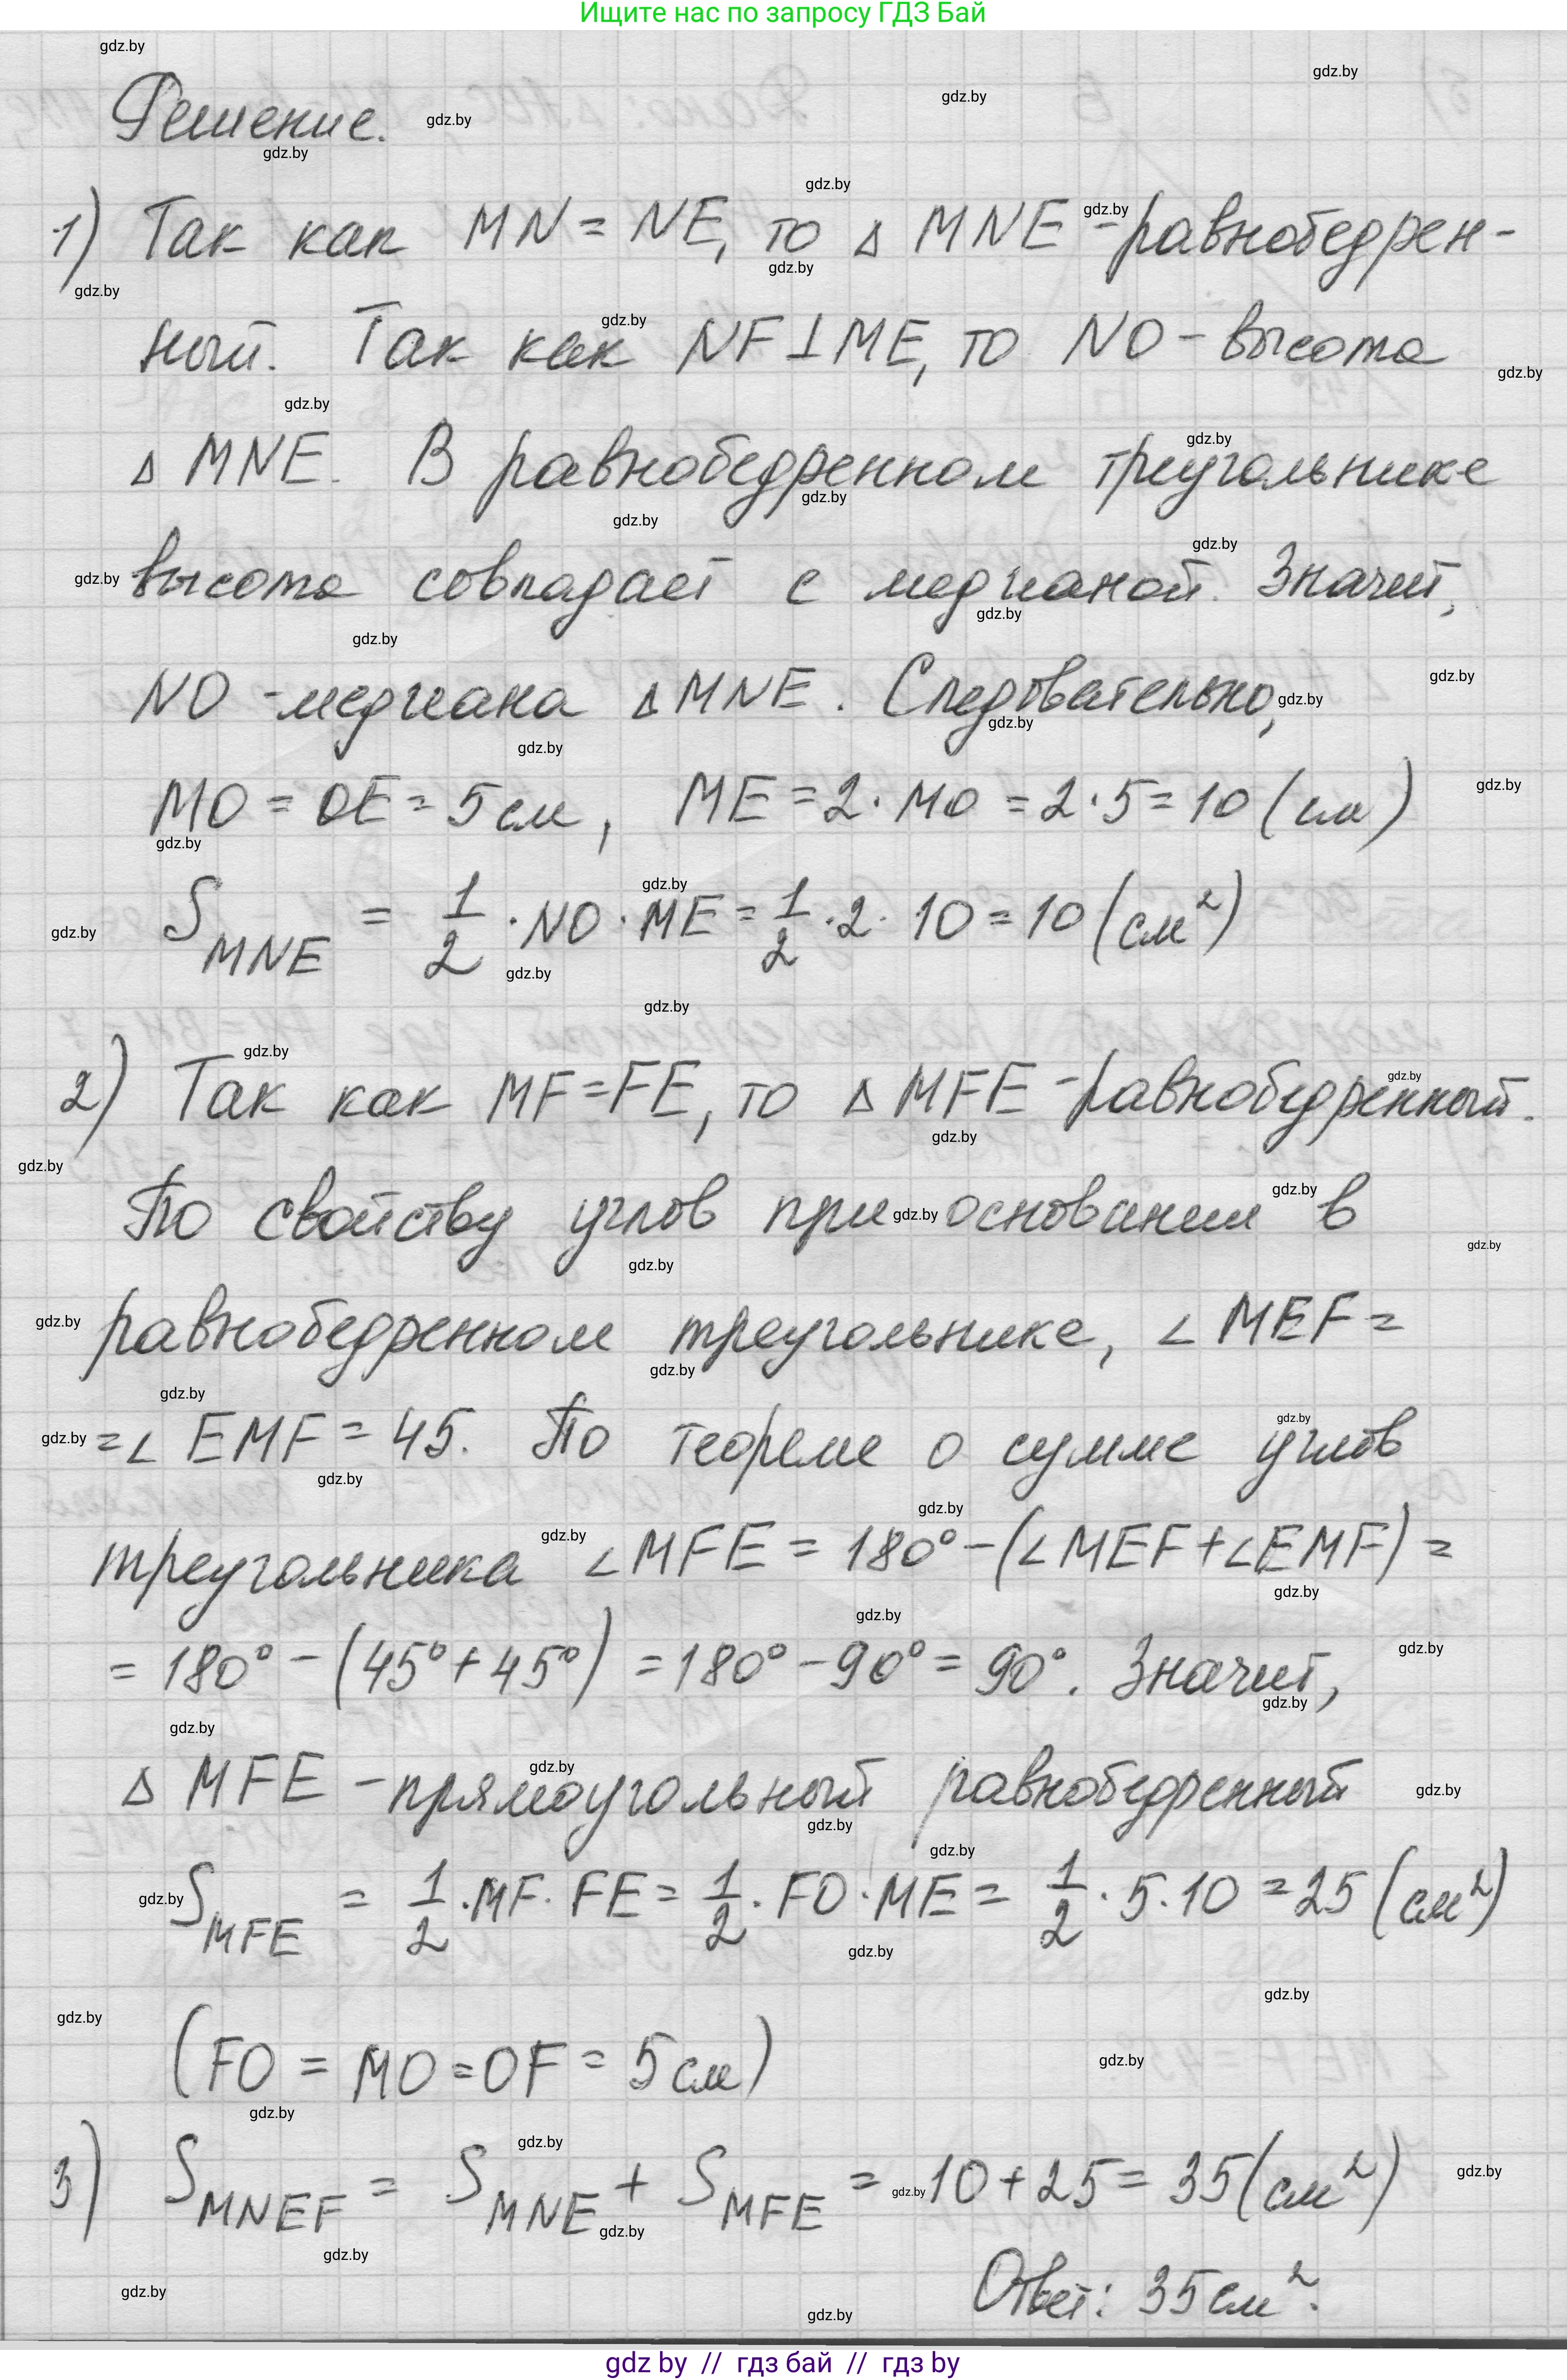 Ищите нас по запросу ГДЗ Бай
Решение.
1) Так как MN = NE, то Δ MNE - равнобедрен-
ный. Так как NF ⊥ ME, то NO - высота
Δ MNE. В равнобедренном треугольнике
высота совпадает с медианой. Значит,
NO - медиана Δ MNE. Следовательно,
MO = OE = 5 см, ME = 2 · MO = 2 · 5 = 10 (см)
S_MNE = 1/2 · NO · ME = 1/2 · 2 · 10 = 10 (см²)
2) Так как MF = FE, то Δ MFE - равнобедренный.
По свойству углов при основании в
равнобедренном треугольнике, ∠ MEF =
= ∠ EMF = 45. По теореме о сумме углов
треугольника ∠ MFE = 180° - (∠ MEF + ∠ EMF) =
= 180° - (45° + 45°) = 180° - 90° = 90°. Значит,
Δ MFE - прямоугольный равнобедренный
S_MFE = 1/2 · MF · FE = 1/2 · FO · ME = 1/2 · 5 · 10 = 25 (см²)
(FO = MO = OF = 5 см)
3) S_MNEF = S_MNE + S_MFE = 10 + 25 = 35 (см²)
Ответ: 35 см².
gdz by // гдз бай // гдз by